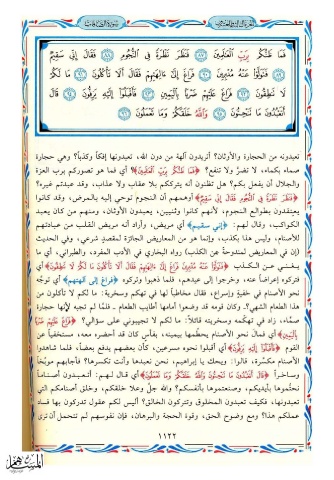 فَمَا ظَنُّكُم بِرَبِّ الْعَالَمِينَ فَنَظَرَ نَظْرَةً فِي النُّجُومِ فَقَالَ إِنِّي سَقِيمٌ
فَتَوَلَّوْا عَنْهُ مُدْبِرِينَ فَرَاغَ إِلَىٰ آلِهَتِهِمْ فَقَالَ أَلَا تَأْكُلُونَ مَا لَكُمْ
لَا تَنطِقُونَ فَرَاغَ عَلَيْهِمْ ضَرْبًا بِالْيَمِينِ فَأَقْبَلُوا إِلَيْهِ يَزِفُّونَ قَالَ
أَتَعْبُدُونَ مَا تَنْحِتُونَ وَاللَّهُ خَلَقَكُمْ وَمَا تَعْمَلُونَ
تعبدونه من الحجارة والأوثان؟ أتريدون آلهة من دون الله، تعبدونها إفكاً وكذباً؟ وهي حجارة
صماء بكماء، لا تضرُّ ولا تنفع؟ ﴿فَمَا ظَنُّكُم بِرَبِّ الْعَالَمِينَ﴾ أي فما هو تصوركم برب العزة
والجلال أن يفعل بكم؟ هل تظنون أنه يترككم بلا عقاب ولا عذاب، وقد عبدتم غيره؟
﴿فَنَظَرَ نَظْرَةً فِي النُّجُومِ فَقَالَ إِنِّي سَقِيمٌ﴾ أوهمهم أن النجوم توحي إليه بالمرض، وقد كانوا
يعتقدون بطوالع النجوم، لأنهم كانوا وثنيين، يعبدون الأوثان، ومنهم من كان يعبد
الكواكب، وقال لهم: ﴿إِنِّي سَقِيمٌ﴾ أي مريض، وأراد أنه مريض القلب من عبادتهم
للأصنام، وليس هذا بكذب، وإنما هو من المعاريض الجائزة لمقصدٍ شرعي، وفي الحديث
(إن في المعاريض لمندوحةً عن الكذب) رواه البخاري في الأدب المفرد، والطبراني، أي ما
يغني عن الكذب ﴿فَتَوَلَّوْا عَنْهُ مُدْبِرِينَ فَرَاغَ إِلَىٰ آلِهَتِهِمْ فَقَالَ أَلَا تَأْكُلُونَ مَا لَكُمْ لَا تَنطِقُونَ﴾ أي
فتركوه إعراضاً عنه، وخرجوا إلى عيدهم، فلما ذهبوا وتركوه ﴿فَرَاغَ إِلَىٰ آلِهَتِهِمْ﴾ أي توجَّه
نحو الأصنام في خفية وإسراع، فقال مخاطباً لها في تهكم وسخرية: ما لكم لا تأكلون من
هذا الطعام الشهي؟ وكان قومه قد وضعوا أمامها أطايب الطعام ــ فلمَّا لم تجبه لأنها حجارة
صمَّاء، زاد في تهكمه وسخريته قائلاً: ما لكم لا تجيبوني على سؤالي؟ ﴿فَرَاغَ عَلَيْهِمْ ضَرْبًا
بِالْيَمِينِ﴾ أي فمال نحو الأصنام يحطمها بيمينه، بفأس كان قد أحضره معه، مستخفياً عن
القوم ﴿فَأَقْبَلُوا إِلَيْهِ يَزِفُّونَ﴾ أي أقبلوا نحوه مسرعين، كأن بعضهم يدفع بعضاً، فلما شاهدوا
الأصنام مكسَّرة، قالوا: ويحك يا إبراهيم، نحن نعبدها وأنت تكسرها؟ فأجابهم موبِّخاً
وساخراً ﴿قَالَ أَتَعْبُدُونَ مَا تَنْحِتُونَ وَاللَّهُ خَلَقَكُمْ وَمَا تَعْمَلُونَ﴾ أي قال لهم: أتعبدون أصناماً
نحتُّموها بأيديكم، وصنعتموها بأنفسكم؟ والله جلَّ وعلا خلقكم، وخلق أصنامكم التي
تعبدونها، فكيف تعبدون المخلوق وتتركون الخالق؟ أليس لكم عقول تدركون بها فساد
عملكم هذا؟ ومع وضوح الحق، وقوة الحجة والبرهان، فإن نفوسهم لم تتحمل أن ترى
١١٢٢